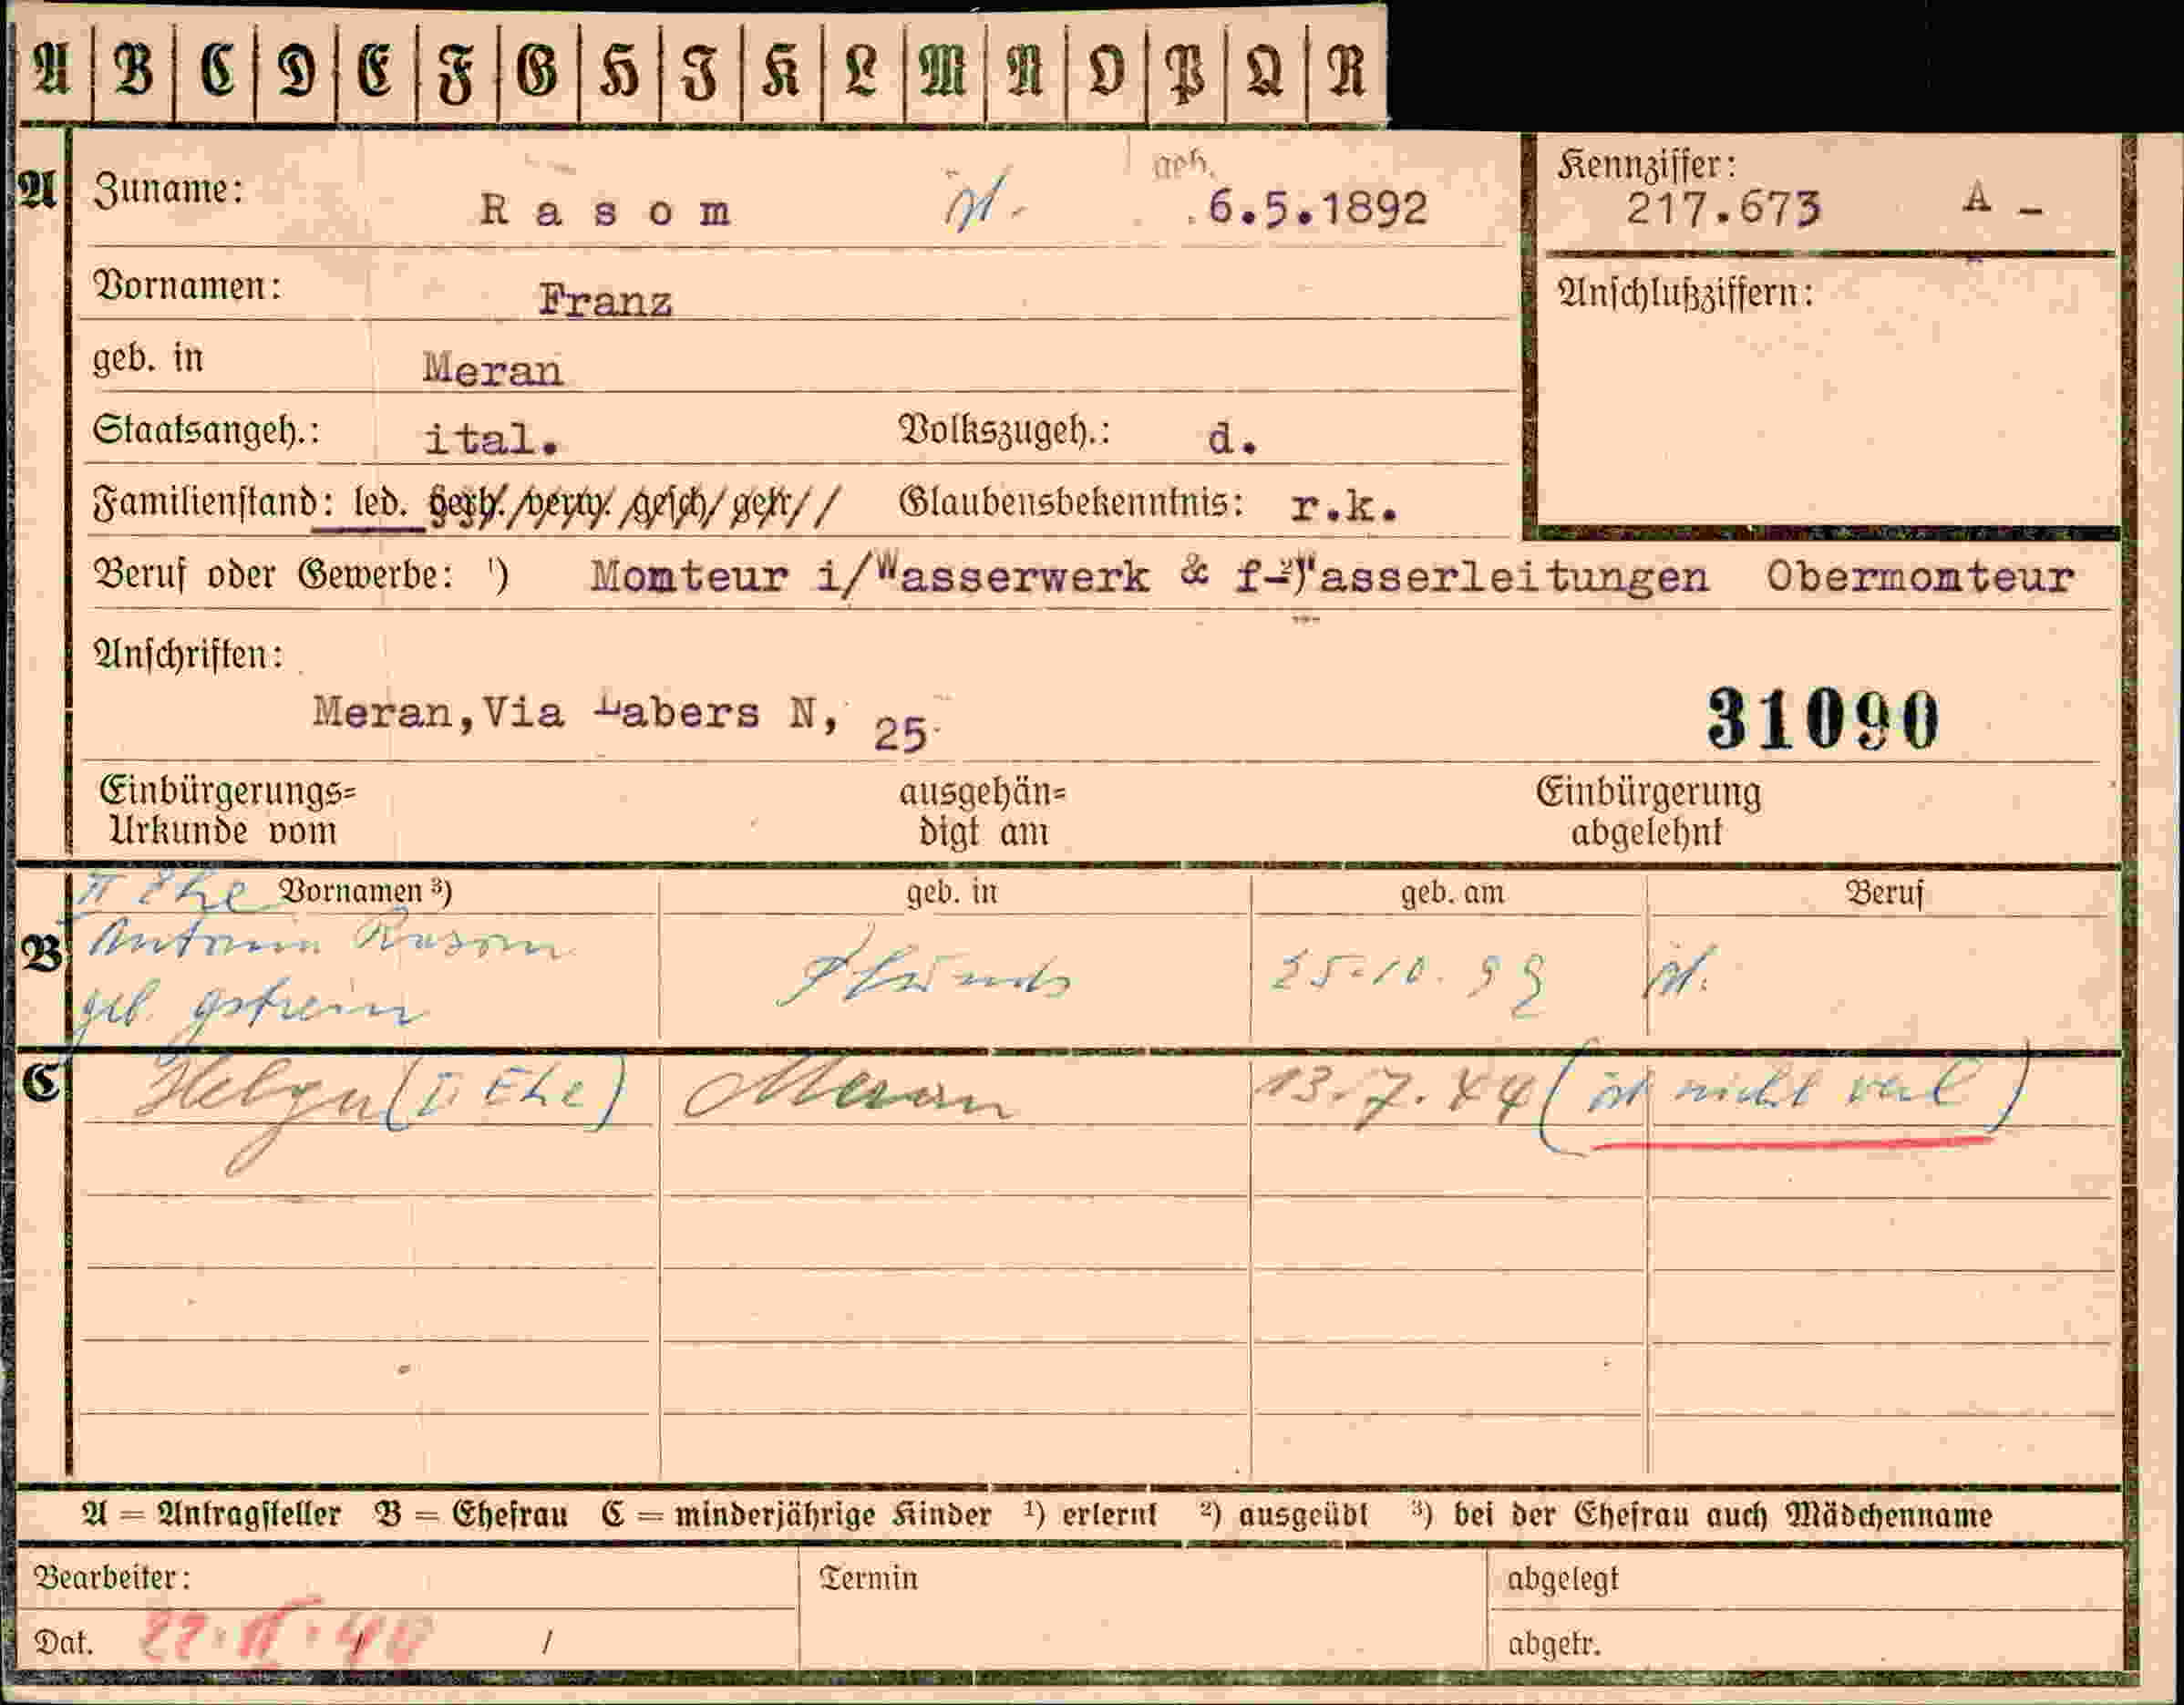 A B C D E F G H I K L M N O P Q R
A Zuname: R a s o m geb. 6.5.1892
Kennziffer:
217.673 A -
Vornamen: Franz
Anschlußziffern:
geb. in Meran
Staatsangeh.: ital. Volkszugeh.: d.
Familienstand: led. gesch. getr. Glaubensbekenntnis: r.k.
Beruf oder Gewerbe: ¹) Monteur i/Wasserwerk & f-²)Wasserleitungen Obermonteur
Anschriften:
Meran,Via Labers N, 25
31090
Einbürgerungs= ausgehän= Einbürgerung
Urkunde vom digt am abgelehnt
II Ehe Vornamen ³) geb. in geb. am Beruf
B Antonia Rasom
geb. gstrein 25.10.99
C Helga (II Ehe) Meran 13.7.44 (ist nicht)
A = Antragsteller B = Ehefrau C = minderjährige Kinder ¹) erlernt ²) ausgeübt ³) bei der Ehefrau auch Mädchenname
Bearbeiter: Termin abgelegt
Dat. / abgetr.